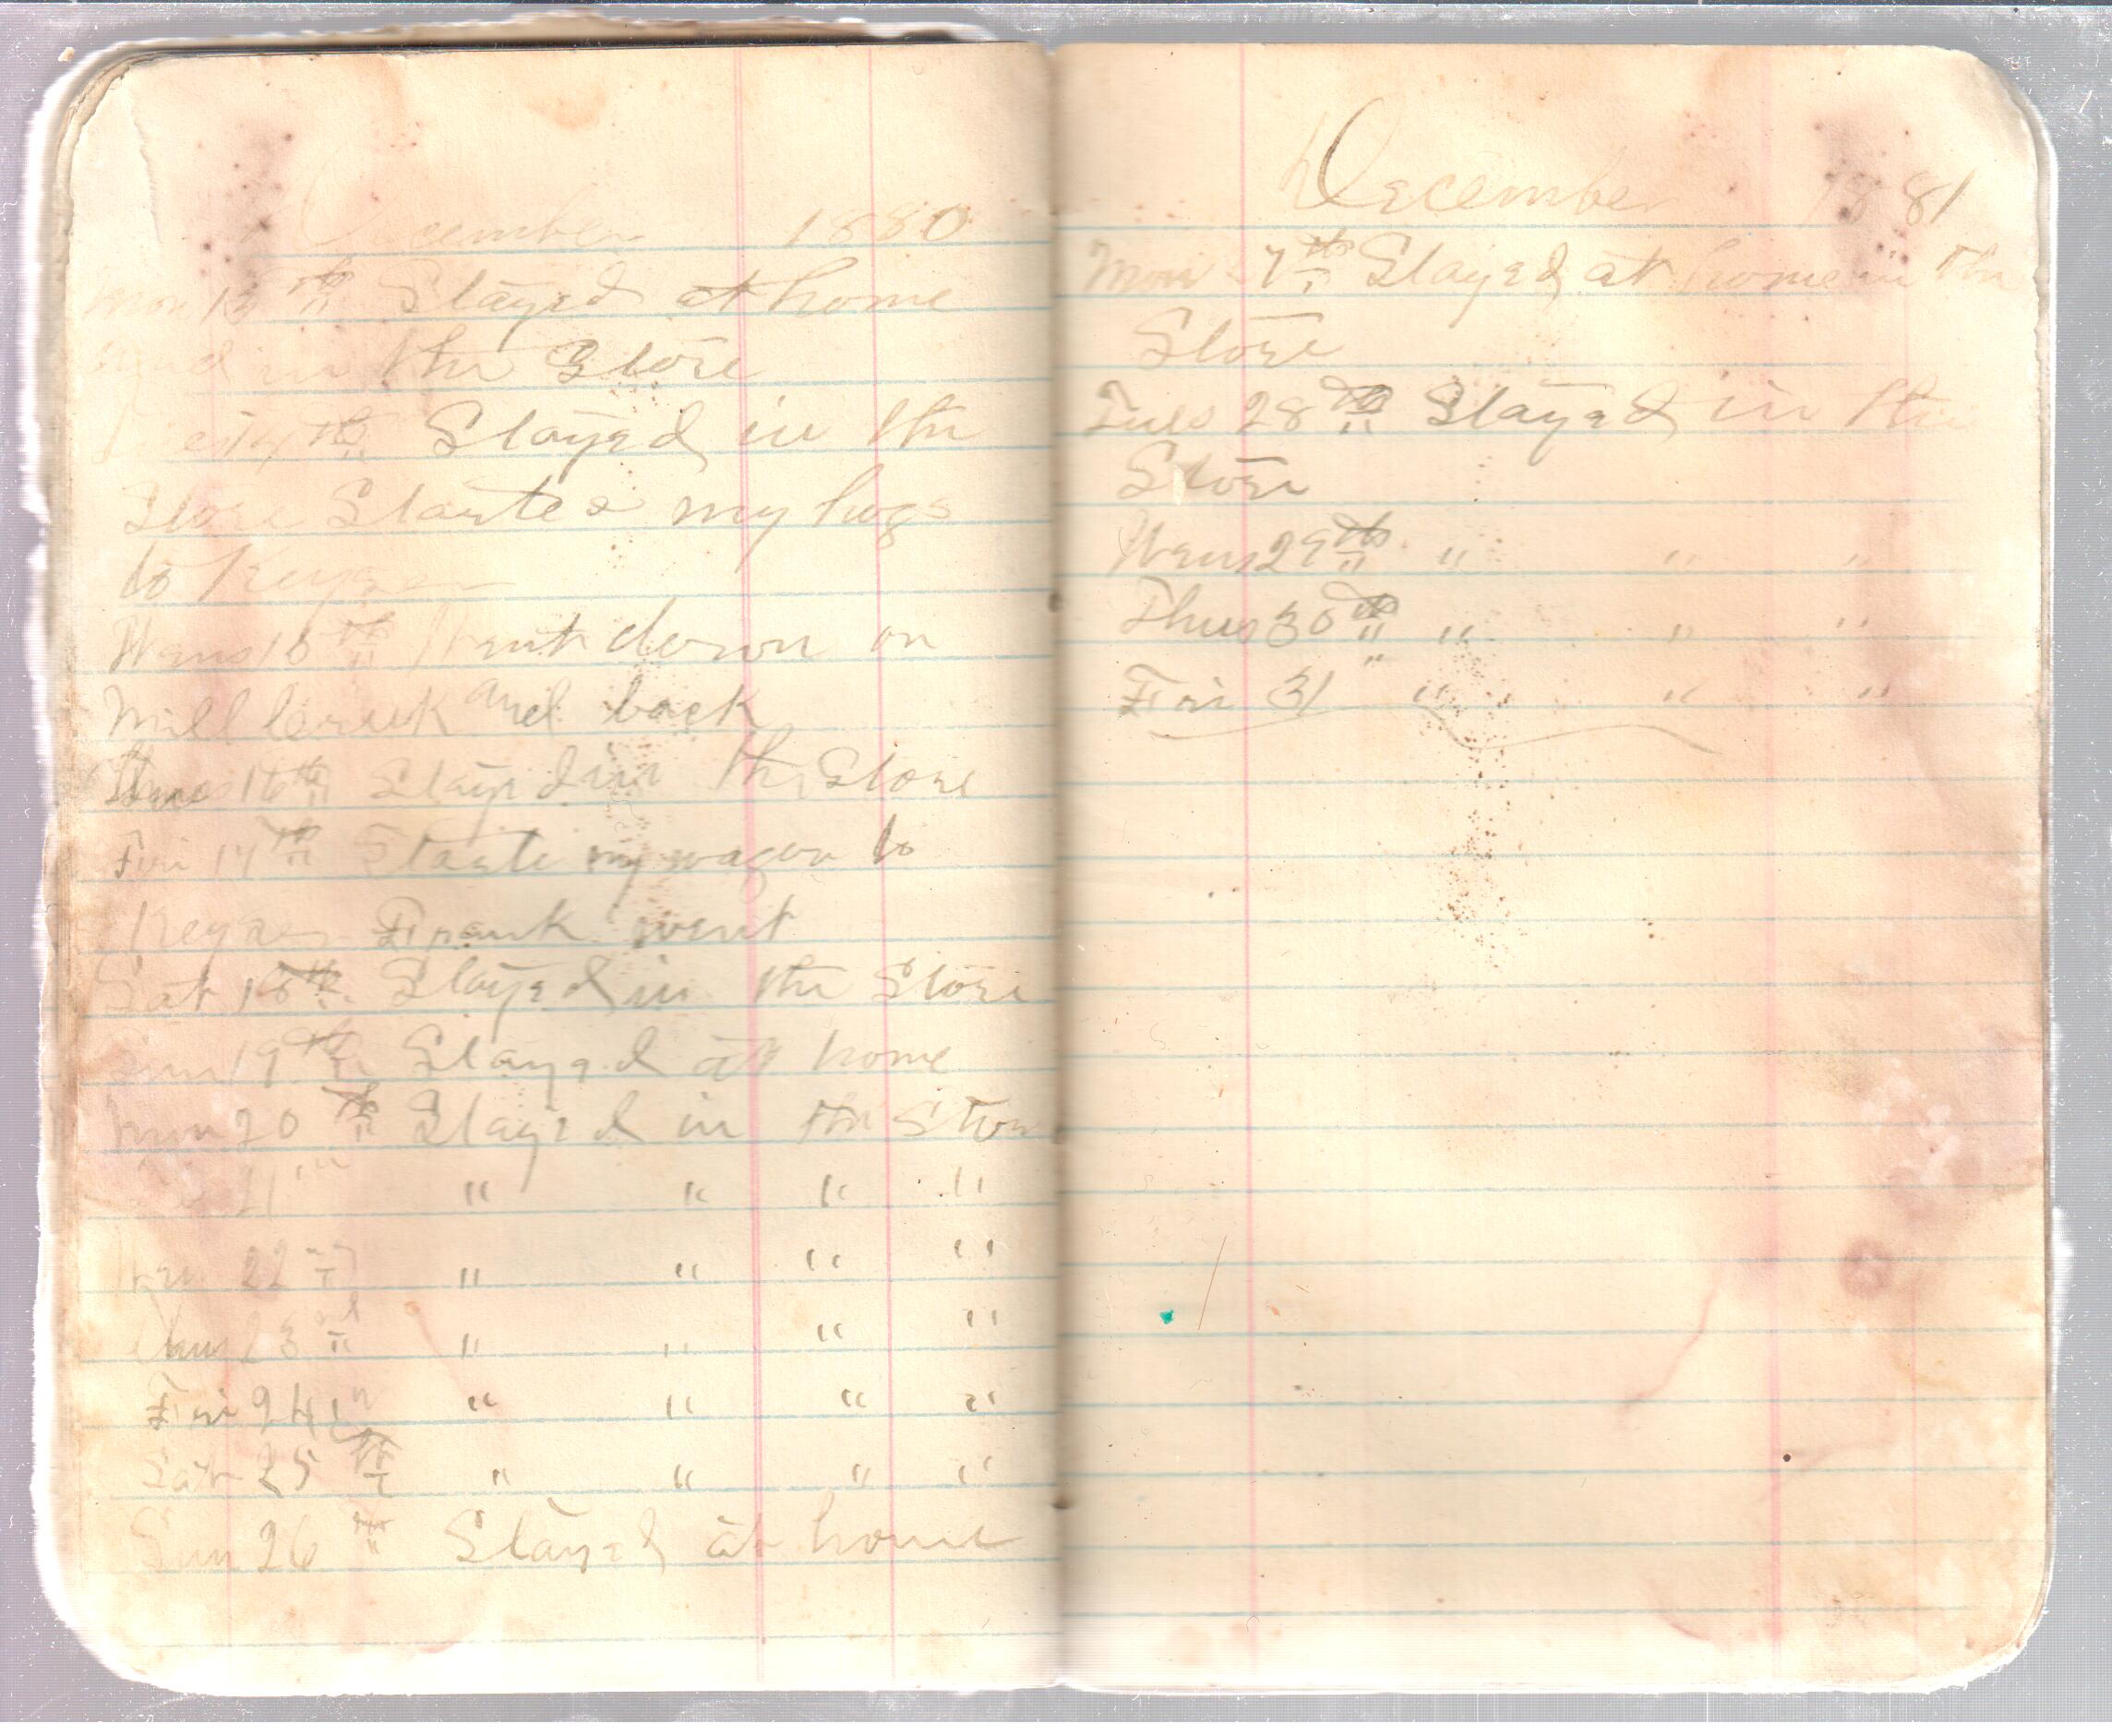 December 1880
Mon 13th Stayed at home
and in the Store
Tues 14th Stayed in the
Store Started my hogs
to Keyser
Wens 15th Went down on
Mill Creek and back
Thurs 16th Stayed in the Store
Fri 17th Starte my wagon to
Keyser Frank went
Sat 18th Stayed in the Store
Sun 19th Stayed at home
Mon 20th Stayed in the Store
21 " " " "
Wen 22 " " " "
Thurs 23rd " " " "
Fri 24th " " " "
Sat 25th " " " "
Sun 26th Stayed at home
December 1881
Mon 27th Stayed at home in the
Store
Tues 28th Stayed in the
Store
Wens 29th " " "
Thurs 30th " " "
Fri 31 " " " "